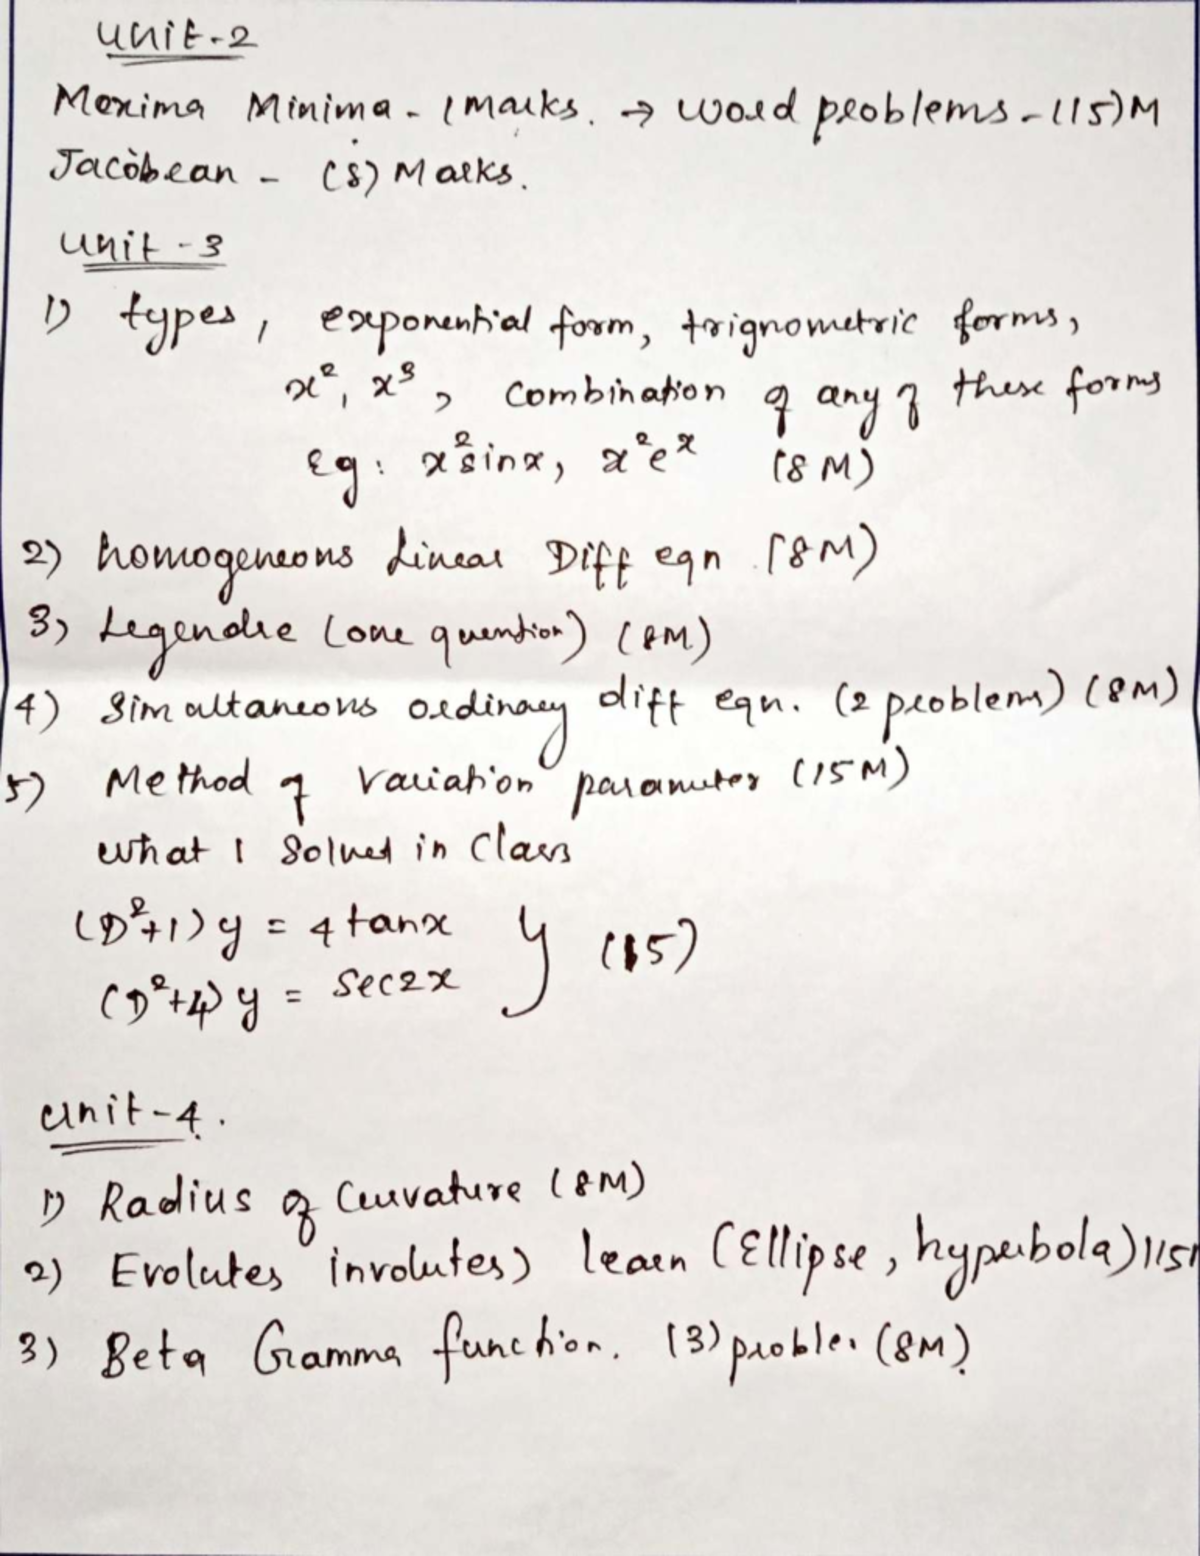 Unit-2
Maxima Minima - 1 marks. → word problems - (15)M
Jacobean - (8) Marks.
Unit - 3
1) types, exponential form, trignometric forms,
x², x³, combination of any of these forms
Eg: x²sinx, x²eˣ (8M)
2) homogeneous Linear Diff eqn (8M)
3) Legendre (one question) (8M)
4) Simultaneous ordinary diff eqn. (2 problems) (8M)
5) Method of variation parameter (15M)
what I solved in class
(D²+1)y = 4tanx
(D²+4)y = sec2x } (15)
Unit-4.
1) Radius of Curvature (8M)
2) Evolutes involutes) learn (Ellipse, hyperbola) 115
3) Beta Gamma function. (3) proble. (8M).